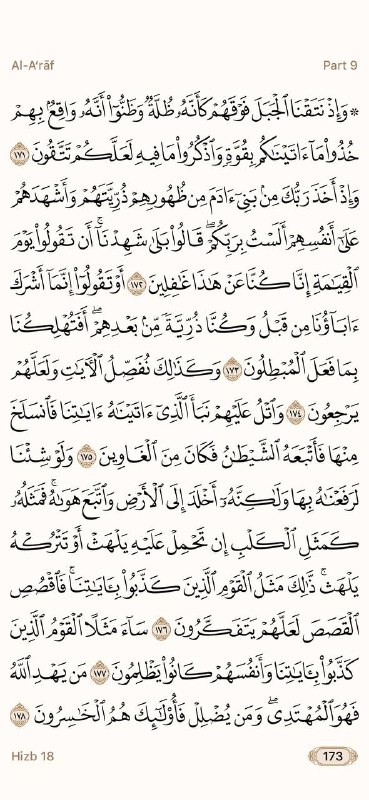 Al-A‘rāf
Part 9
۞ وَإِذْ نَتَقْنَا ٱلْجَبَلَ فَوْقَهُمْ كَأَنَّهُۥ ظُلَّةٌ وَظَنُّوٓا۟ أَنَّهُۥ وَاقِعٌۢ بِهِمْ
خُذُوا۟ مَآ ءَاتَيْنَٰكُم بِقُوَّةٍ وَٱذْكُرُوا۟ مَا فِيهِ لَعَلَّكُمْ تَتَّقُونَ ١٧١
وَإِذْ أَخَذَ رَبُّكَ مِنۢ بَنِىٓ ءَادَمَ مِن ظُهُورِهِمْ ذُرِّيَّتَهُمْ وَأَشْهَدَهُمْ
عَلَىٰٓ أَنفُسِهِمْ أَلَسْتُ بِرَبِّكُمْ ۖ قَالُوا۟ بَلَىٰ شَهِدْنَآ ۛ أَن تَقُولُوا۟ يَوْمَ
ٱلْقِيَٰمَةِ إِنَّا كُنَّا عَنْ هَٰذَا غَٰفِلِينَ ١٧٢ أَوْ تَقُولُوٓا۟ إِنَّمَآ أَشْرَكَ
ءَابَآؤُنَا مِن قَبْلُ وَكُنَّا ذُرِّيَّةً مِّنۢ بَعْدِهِمْ ۖ أَفَتُهْلِكُنَا
بِمَا فَعَلَ ٱلْمُبْطِلُونَ ١٧٣ وَكَذَٰلِكَ نُفَصِّلُ ٱلْءَايَٰتِ وَلَعَلَّهُمْ
يَرْجِعُونَ ١٧٤ وَٱتْلُ عَلَيْهِمْ نَبَأَ ٱلَّذِىٓ ءَاتَيْنَٰهُ ءَايَٰتِنَا فَٱنسَلَخَ
مِنْهَا فَأَتْبَعَهُ ٱلشَّيْطَٰنُ فَكَانَ مِنَ ٱلْغَاوِينَ ١٧٥ وَلَوْ شِئْنَا
لَرَفَعْنَٰهُ بِهَا وَلَٰكِنَّهُۥٓ أَخْلَدَ إِلَى ٱلْأَرْضِ وَٱتَّبَعَ هَوَىٰهُ ۚ فَمَثَلُهُۥ
كَمَثَلِ ٱلْكَلْبِ إِن تَحْمِلْ عَلَيْهِ يَلْهَثْ أَوْ تَتْرُكْهُ
يَلْهَث ۚ ذَّٰلِكَ مَثَلُ ٱلْقَوْمِ ٱلَّذِينَ كَذَّبُوا۟ بِـَٔايَٰتِنَا ۚ فَٱقْصُصِ
ٱلْقَصَصَ لَعَلَّهُمْ يَتَفَكَّرُونَ ١٧٦ سَآءَ مَثَلًا ٱلْقَوْمُ ٱلَّذِينَ
كَذَّبُوا۟ بِـَٔايَٰتِنَا وَأَنفُسَهُمْ كَانُوا۟ يَظْلِمُونَ ١٧٧ مَن يَهْدِ ٱللَّهُ
فَهُوَ ٱلْمُهْتَدِى ۖ وَمَن يُضْلِلْ فَأُو۟لَٰٓئِكَ هُمُ ٱلْخَٰسِرُونَ ١٧٨
Hizb 18
173